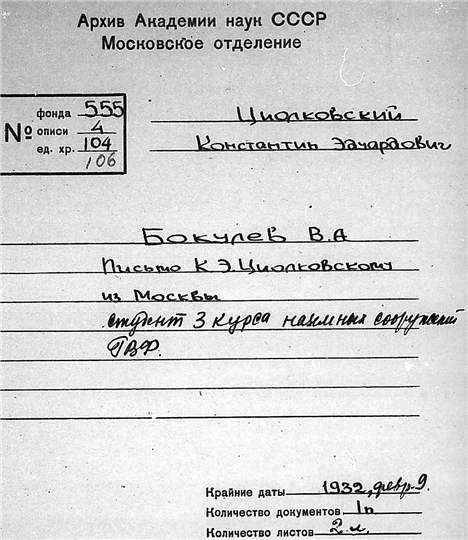 Архив Академии наук СССР
Московское отделение
№
фонда 555
описи 4
ед. хр. 104
106
Циолковский
Константин Эдуардович
Бокулев В.А
Письмо К.Э.Циолковскому
из Москвы
студент 3 курса наземных сооружений
ГВФ.
Крайние даты 1932, февр. 9.
Количество документов 1п
Количество листов 2 л.